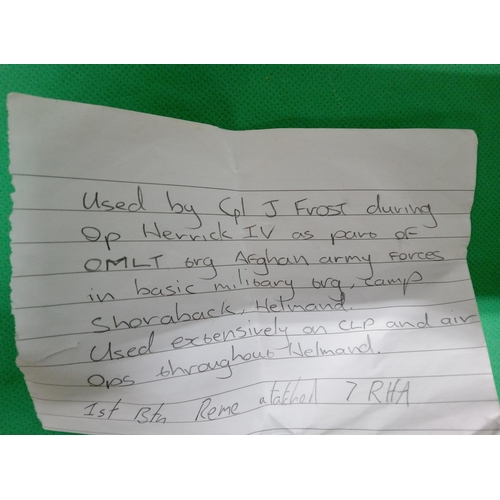 Used by Cpl J Frost during
Op Herrick IV as part of
OMLT trg Afghan army forces
in basic military trg, camp
Shoraback, Helmand.
Used extensively on CLP and air
Ops throughout Helmand.
1st Btn Reme atatched 7 RHA